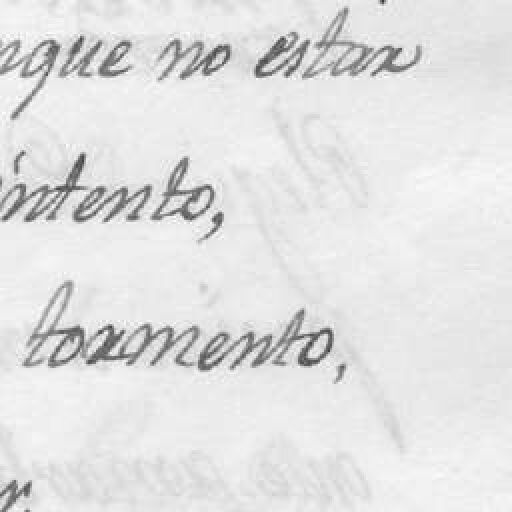 nque no estar
intento,
tormento,
r.